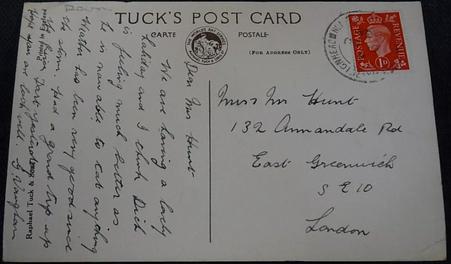 TUCK'S POST CARD
CARTE POSTALE
(FOR ADDRESS ONLY)
POSTAGE REVENUE
1D
Dear Mrs Hunt
We are having a lovely
holiday and I think Dick
is feeling much better as
he is now able to eat anything
Weather has been very good since
the storm. Had a grand trip up
Hope you are well.
Vaughan
Raphael Tuck & Sons
Mrs Hunt
132 Annandale Rd
East Greenwich
S E 10
London